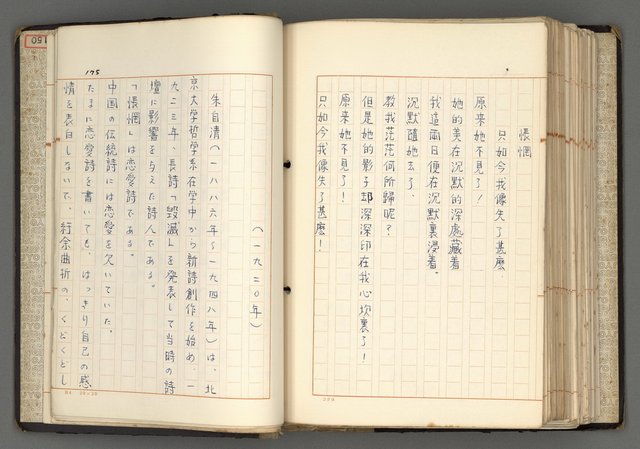 悵惘
只如今我像失了甚麼，
原来她不見了！
她的美在沉默的深處藏着，
我這兩日便在沉默裏浸着。
沉默隨她去了，
教我茫茫何所歸呢？
但是她的影子却深深印在我心坎裏了！
原来她不見了！
只如今我像失了甚麼！
（一九二〇年）
朱自清（一八八六年～一九四八年）は、北
京大学哲学系在学中から新詩創作を始め、一
九二三年、長詩「毀滅」を発表して当時の詩
壇に影響を与えた詩人である。
「悵惘」は恋愛詩である。
中国の伝統詩には恋愛を欠いていた。
たまに恋愛詩を書いても、はっきり自己の感
情を表白しないで、紆余曲折の、くどくどし
175
150
20×20